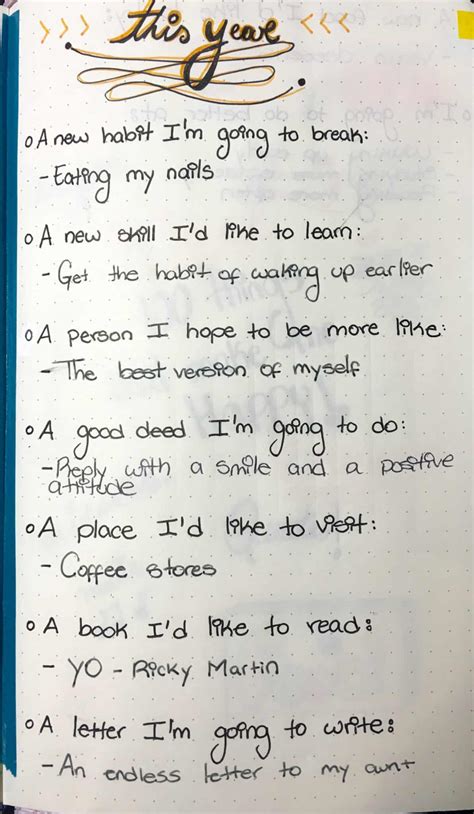 >>> this year <<<
o A new habit I'm going to break:
- Eating my nails
o A new skill I'd like to learn:
- Get the habit of waking up earlier
o A person I hope to be more like:
- The best version of myself
o A good deed I'm going to do:
- Reply with a smile and a positive
attitude
o A place I'd like to visit:
- Coffee stores
o A book I'd like to read:
- YO - Ricky Martin
o A letter I'm going to write:
- An endless letter to my aunt